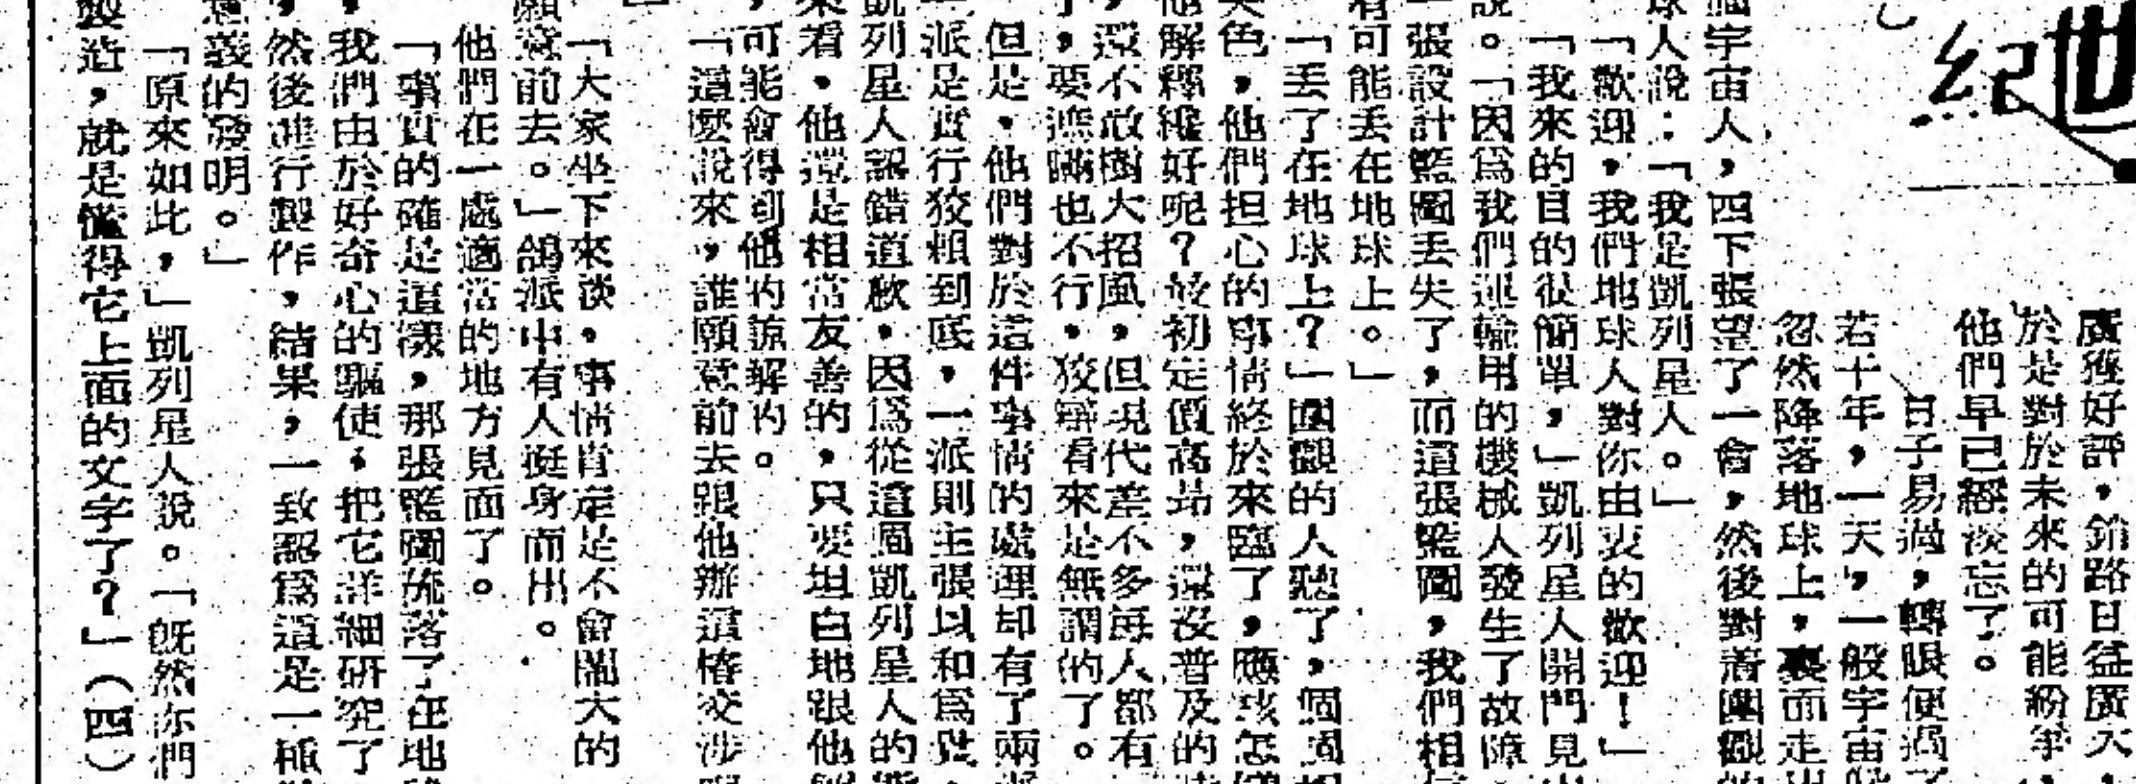 世紀
廣獲好評，銷路日益廣大，
於是對於未來的可能紛爭，
他們早已經淡忘了。
日子易過，轉眼便過了
若干年，一天，一般宇宙
忽然降落地球上，裏面走出
個宇宙人，四下張望了一會，然後對着圍觀的
球人說：「我是凱列星人。」
「歡迎，我們地球人對你由衷的歡迎！」
「我來的目的很簡單，」凱列星人開門見
說。「因爲我們運輸用的機械人發生了故障
一張設計藍圖丢失了，而這張藍圖，我們相信
有可能丢在地球上。」
「丢了在地球上？」圍觀的人聽了，個個
失色，他們担心的事情終於來臨了，應該怎
他解釋纔好呢？最初定價高昻，還没普及的時
，還不敢樹大招風，但現代差不多每人都有
了，要遮瞞也不行，狡辯看來是無謂的了。
但是，他們對於這件事情的處理却有了兩
派是實行狡賴到底，一派則主張以和爲貴，
凱列星人認錯道歉，因爲從這個凱列星人的
來看，他還是相當友善的，只要坦白地跟他
，可能會得到他的諒解的。
「這麽說來，誰願意前去跟他辦這椿交涉
」
「大家坐下來談，事情肯定是不會鬧大的
願意前去。」鴿派中有人挺身而出。
他們在一處適當的地方見面了。
「事實的確是這樣，那張藍圖流落了在地
，我們由於好奇心的驅使，把它詳細研究了
，然後進行製作，結果，一致認爲這是一種
意義的發明。」
「原來如此，」凱列星人說。「旣然你們
製造，就是懂得它上面的文字了？」（四）